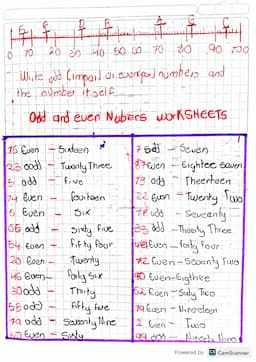 0 10 20 30 40 50 60 70 80 90 100
Write odd (impar) or even(par) numbers and
the number itself.
Odd and even Nubers WORKSHEETS
16 Even - Sixteen
23 odd - Twenty Three
5 odd - five
14 Even - fourteen
6 Even - Six
65 odd - Sixty five
54 Even - fifty four
20 Even - Twenty
46 Even - forty Six
30 odd - Thirty
55 odd - fifty five
79 odd - Seventy Nine
60 Even - Sixty
7 odd - Seven
Even - Eightee Seven
13 odd - Theerteen
22 Even - Twenty Two
odd - Seveanty
33 odd - Theerty Three
Even - forty four
72 Even - Seeanty Two
80 Even - Eigthee
62 Even - Sixty Two
19 Even - Nineteen
2 Even - Two
99 odd - Nine
Powered by CS CamScanner